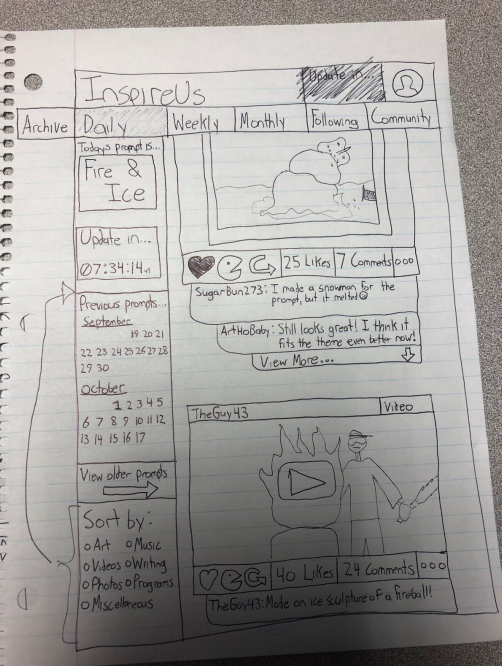 InspireUs
Update in...
Archive
Daily
Weekly
Monthly
Following
Community
Today's prompt is...
Fire &
Ice
Update in...
07:34:14
Previous prompts...
September
19 20 21
22 23 24 25 26 27 28
29 30
October
1 2 3 4 5
6 7 8 9 10 11 12
13 14 15 16 17
View older prompts
Sort by:
Art Music
Videos Writing
Photos Programs
Miscelleneous
25 Likes
7 Comments
SugarBun273: I made a snowman for the
prompt, but it melted
ArtHoBaby: Still looks great! I think it
fits the theme even better now!
View More...
TheGuy43
Video
40 Likes
24 Comments
TheGuy43: Made an ice sculpture of a fireball!!